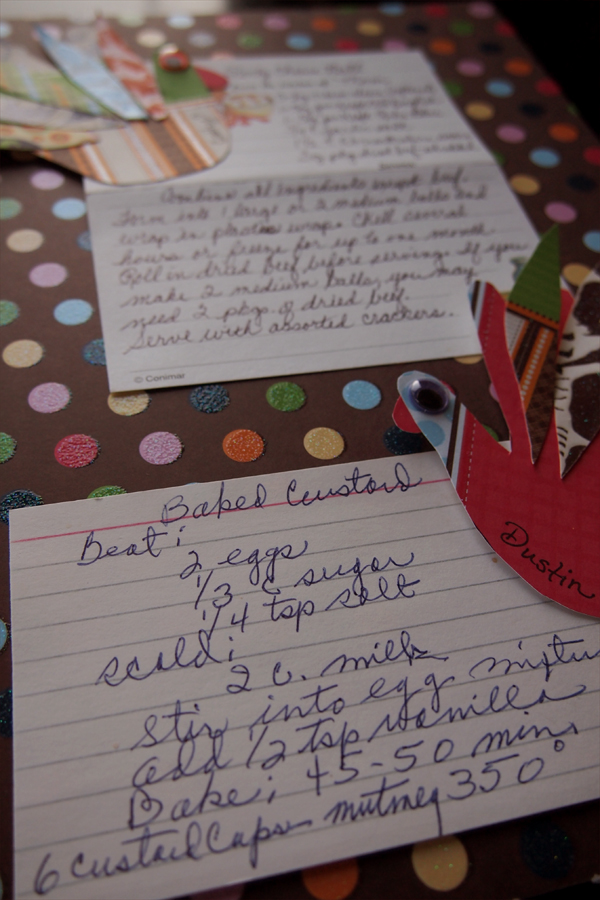 Combine all ingredients except beef.
Form into 1 large or 2 medium balls and
wrap in plastic wrap. Chill several
hours or freeze for up to one month
Roll in dried beef before serving. If you
make 2 medium balls, you may
need 2 pkgs. of dried beef.
Serve with assorted crackers.
© Conimar
Dustin
Baked Custard
Beat:
2 eggs
1/3 c sugar
1/4 tsp salt
scald:
2 c. milk
stir into egg mixtu
add 1/2 tsp vanilla
Bake: 45-50 min.
6 Custard Cups nutmeg 350°